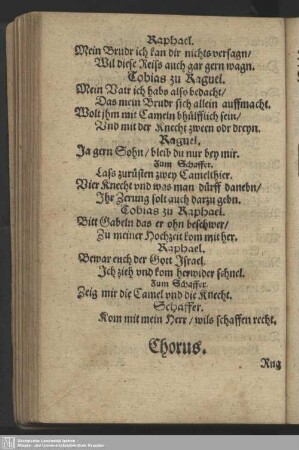 Raphael.
Mein Brudr ich kan dir nichts versagn/
Wil diese Reiss auch gar gern wagn.
Tobias zu Raguel.
Mein Vatr ich habs also bedacht/
Das mein Brudr sich allein auffmacht.
Wolt jhm mit Cameln bhülfflich sein/
Vnd mit der Knecht zween odr dreyn.
Raguel.
Ja gern Sohn/ bleib du nur bey mir.
Zum Schaffer.
Lass zurüsten zwey Camelthier.
Vier Knecht vnd was man dürff danebn/
Ihr Zerung solt auch darzu gebn.
Tobias zu Raphael.
Bitt Gabeln das er ohn beschwer/
Zu meiner Hochzeit kom mit her.
Raphael.
Bewar euch der Gott Israel.
Ich zieh vnd kom herwider schnel.
Zum Schaffer.
Zeig mir die Camel vnd die Knecht.
Schaffer.
Kom mit mein Herr/ wils schaffen recht.
Chorus.
Rug